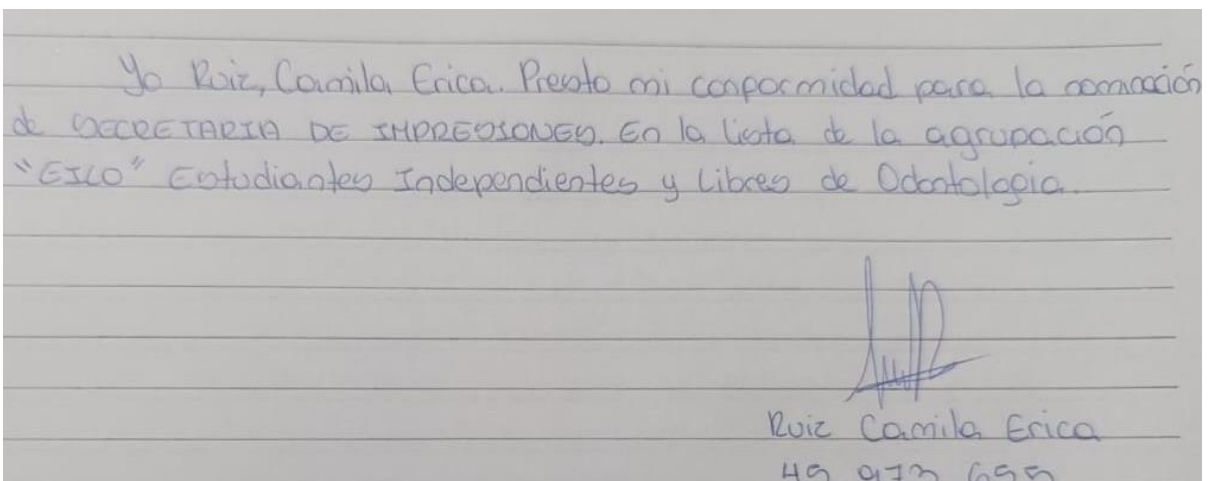 Yo Ruiz, Camila Erica. Presto mi conformidad para la nominación
de SECRETARIA DE IMPRESIONES. En la lista de la agrupación
"EILO" Estudiantes Independientes y Libres de Odontologia
Ruiz Camila Erica